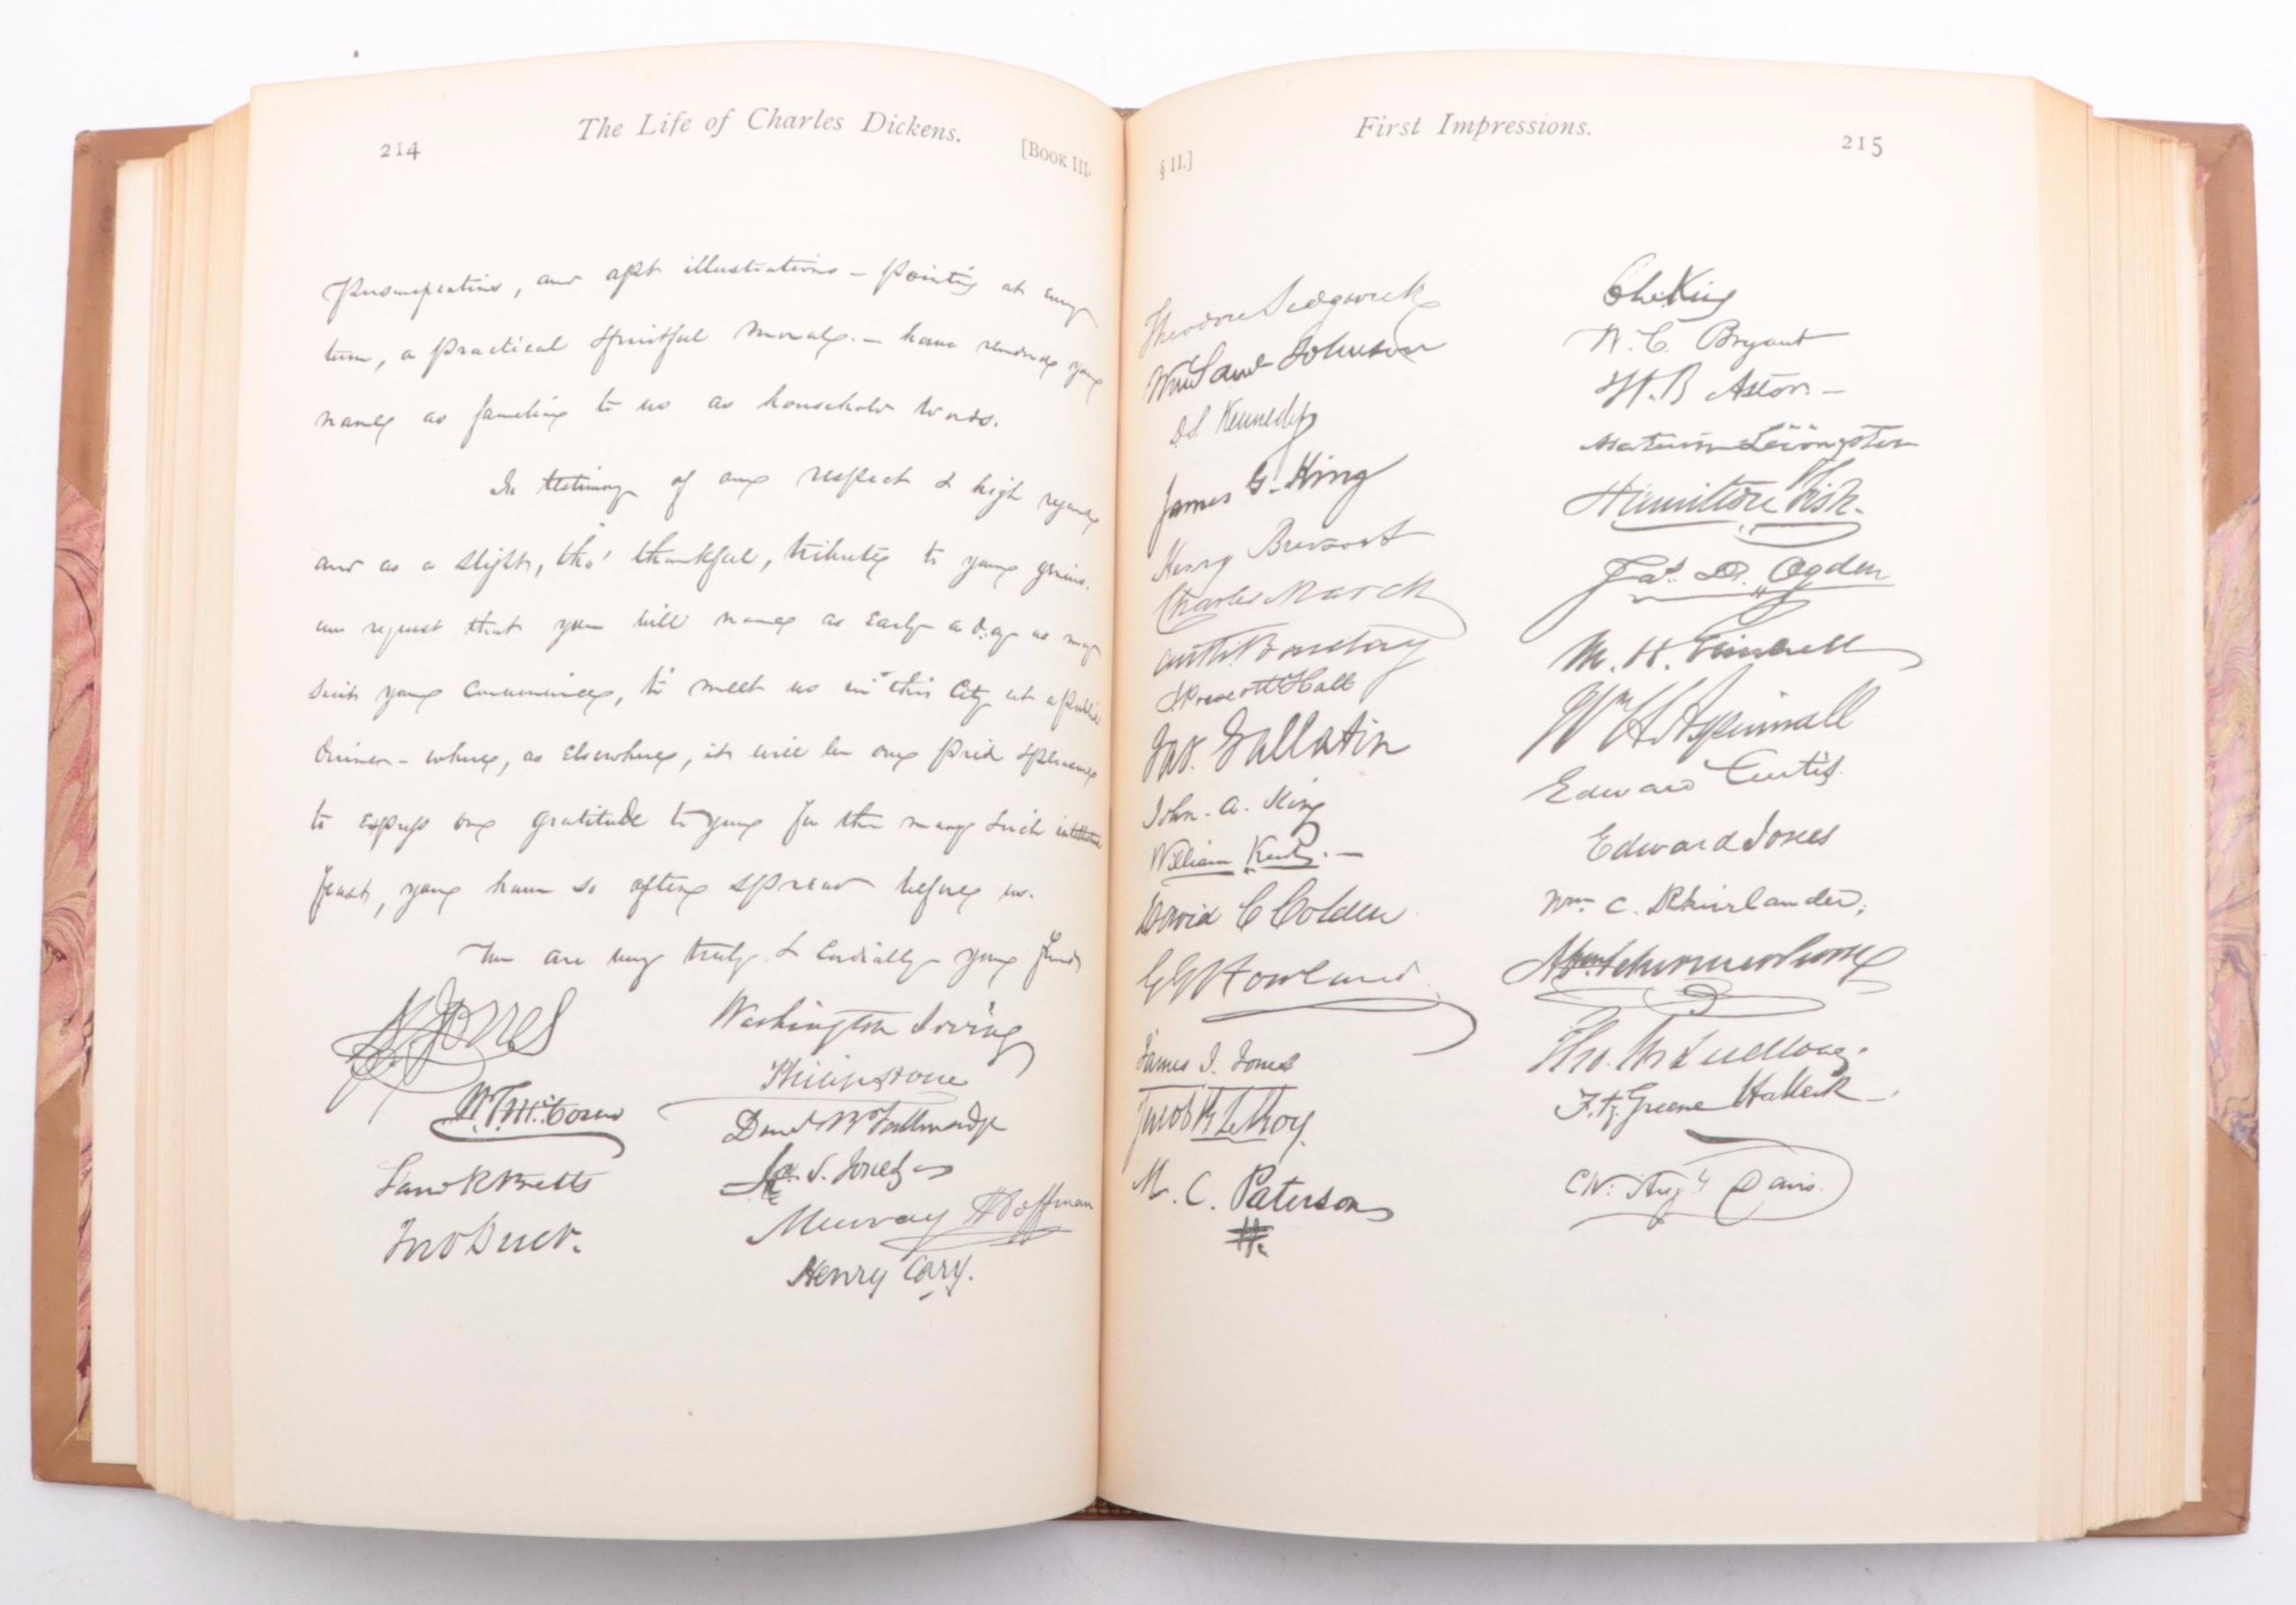 214
The Life of Charles Dickens.
[BOOK III.
, and apt illustrations – pointing at every
turn, a practical & fruitful moral, – have rendered your
name as familiar to us as household words.
In testimony of our respect & high regard,
and as a slight, tho' thankful, tribute to your genius,
we request that you will name as early a day as may
suit your convenience, to meet us in this City at a public
dinner – where, as elsewhere, it will be our pride & pleasure
to express our gratitude to you for the many such intellectual
feasts, you have so often spread before us.
We are very truly & cordially your friends
Washington Irving
Philip Hone
Murray Hoffman
Henry Cary.
§ II.]
First Impressions.
215
Theodore Sedgwick
Johnson
Kennedy
James G. King
Henry Brevoort
Charles March
J Prescott Hall
Jas. Gallatin
John. A. King
William Kent. –
David C Colden
G G Howland
James I. Jones
Jacob R LeRoy.
M. C. Paterson
Cha King
W. C. Bryant
W. B Astor. –
Livingston
Hamilton Fish.
Jas. D. Ogden
M. H. Grinnell
Wm H Aspinwall
Edward Curtis.
Edward Jones
Wm. C. Rhinelander,
Abm Schermerhorn
Tho. W Ludlow.
Fitz Greene Halleck –
Ch: Augs Davis.